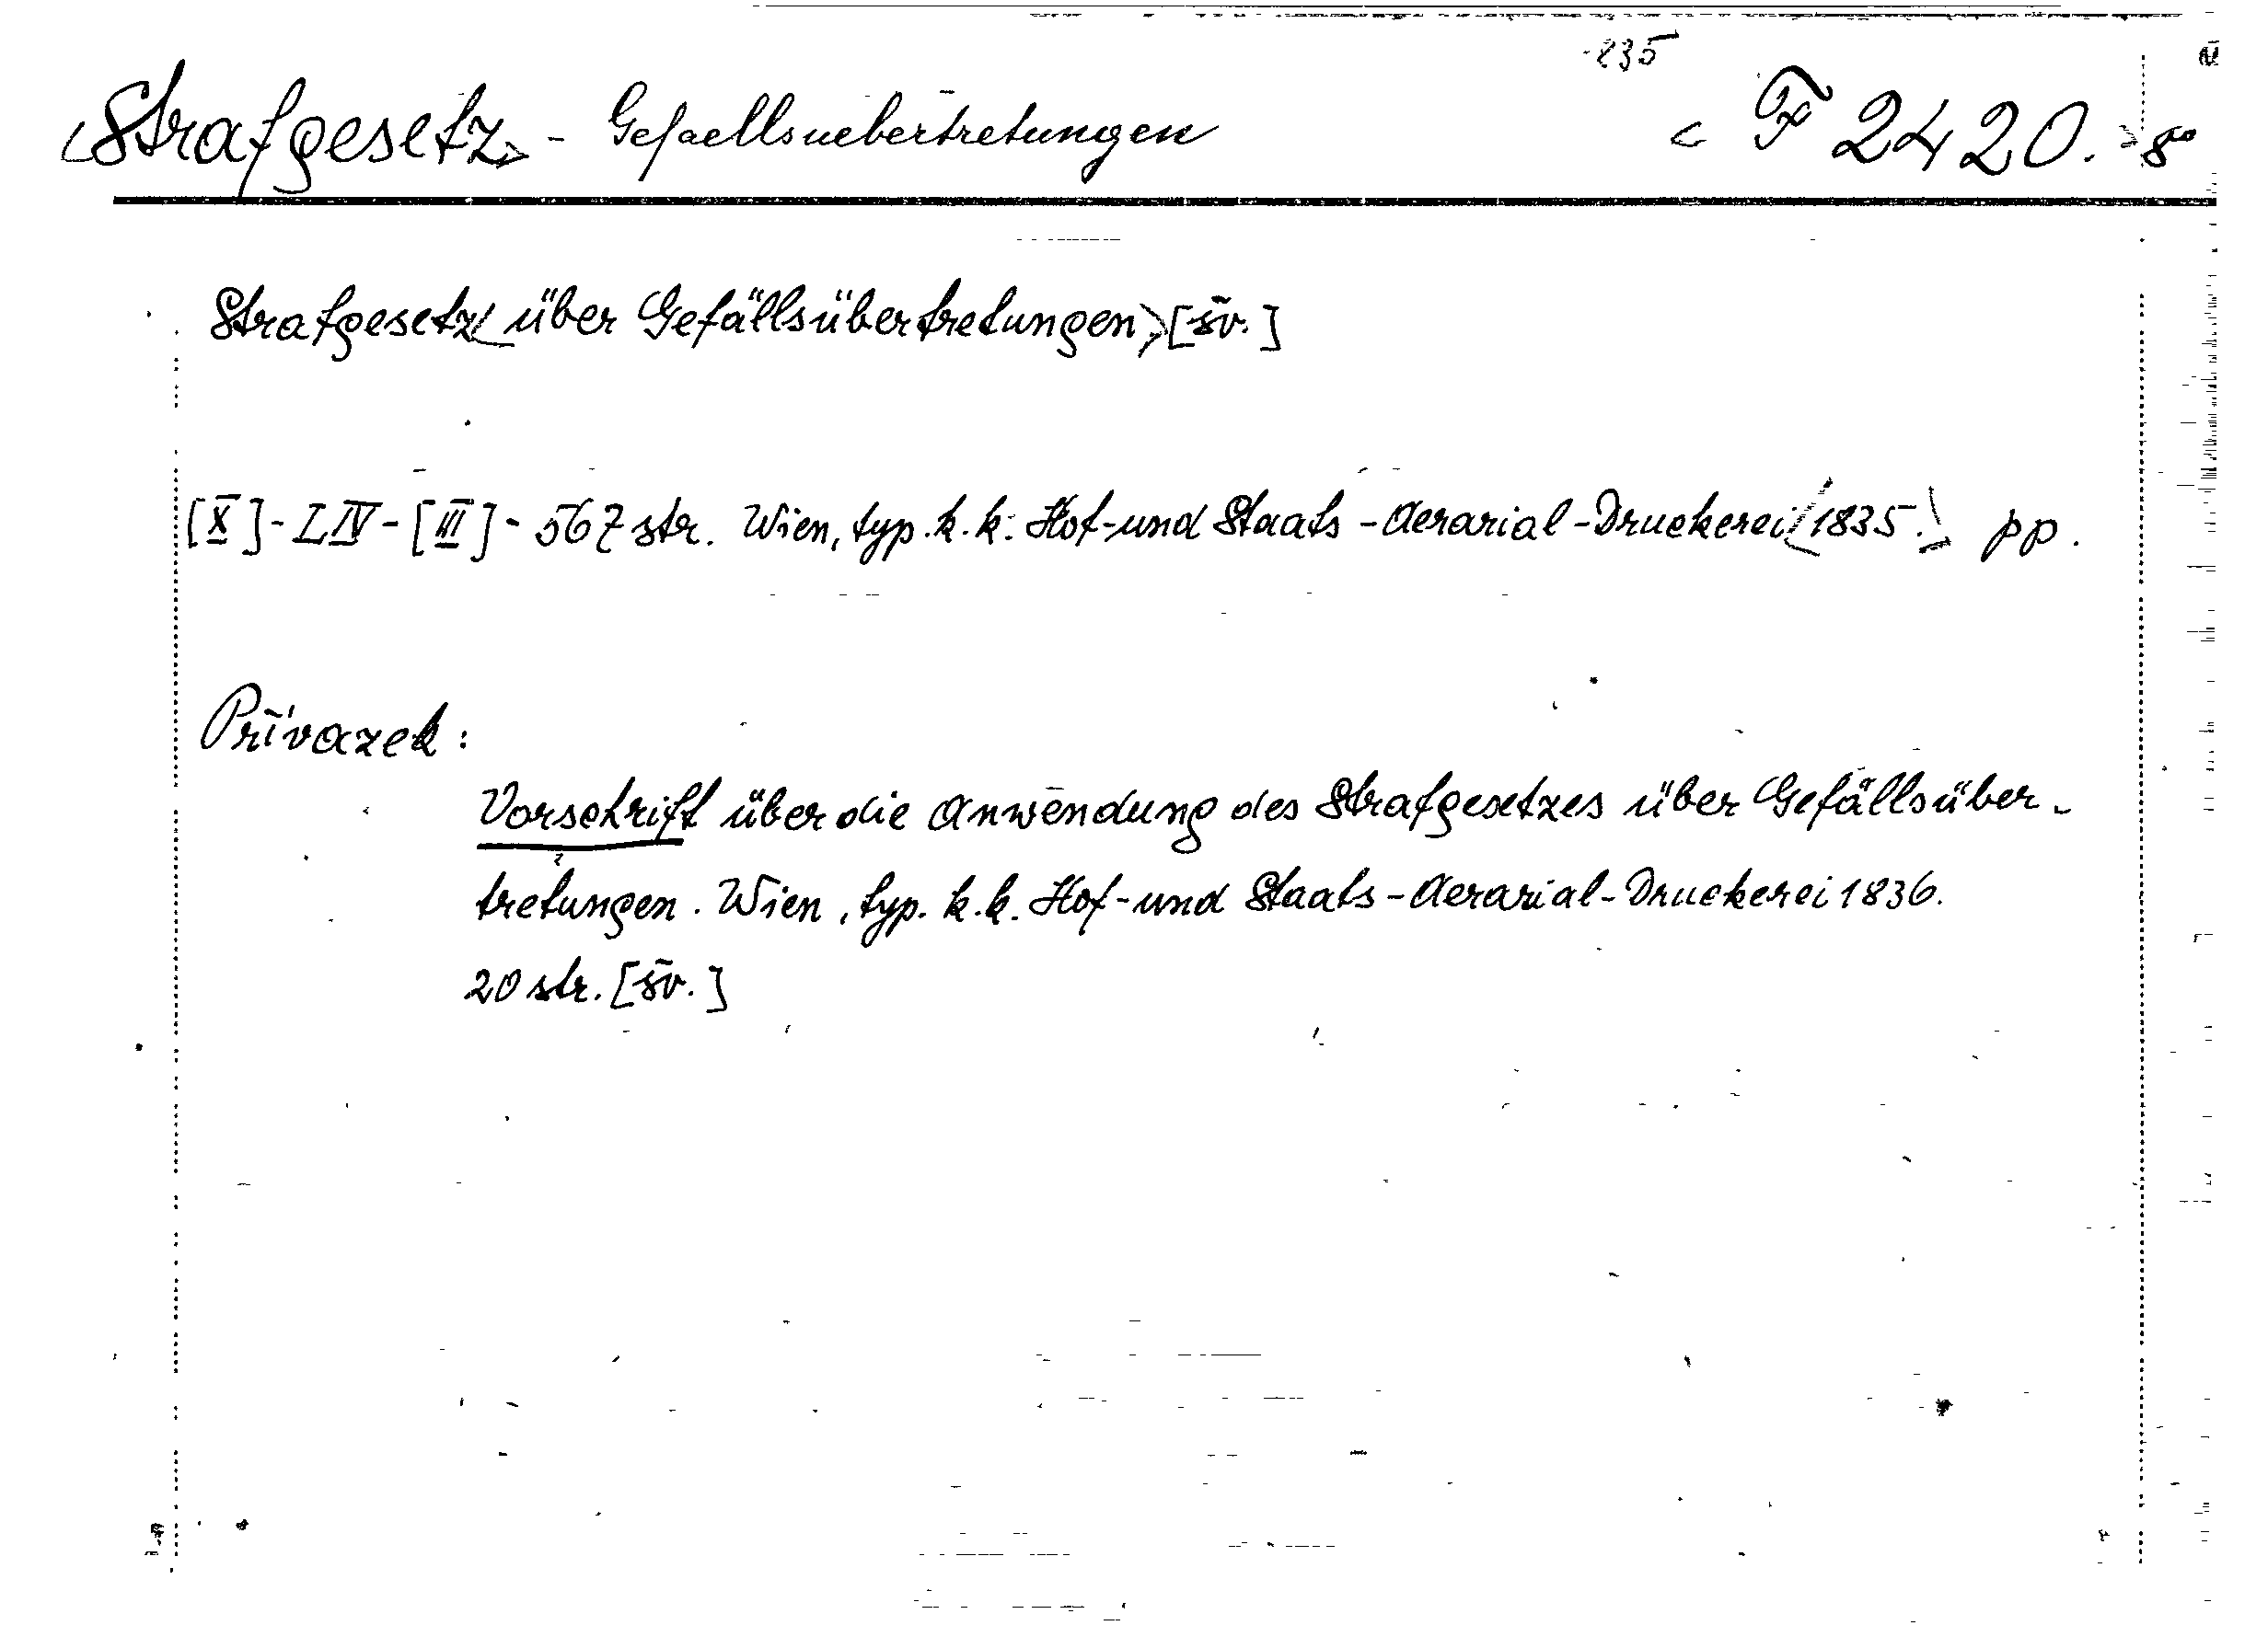 835
<Strafgesetz> - Gefaellsuebertretungen < F 2420. > 8°
Strafgesetz < über Gefällsübertretungen. > [šv.]
[X] - LIV - [III] - 567 str. Wien, typ. k. k. Hof- und Staats - Aerarial - Druckerei < 1835. > pp.
Přívazek:
Vorschrift über die Anwendung des Strafgesetzes über Gefällsüber-
tretungen. Wien, typ. k. k. Hof- und Staats - Aerarial - Druckerei 1836.
20 str. [šv.]